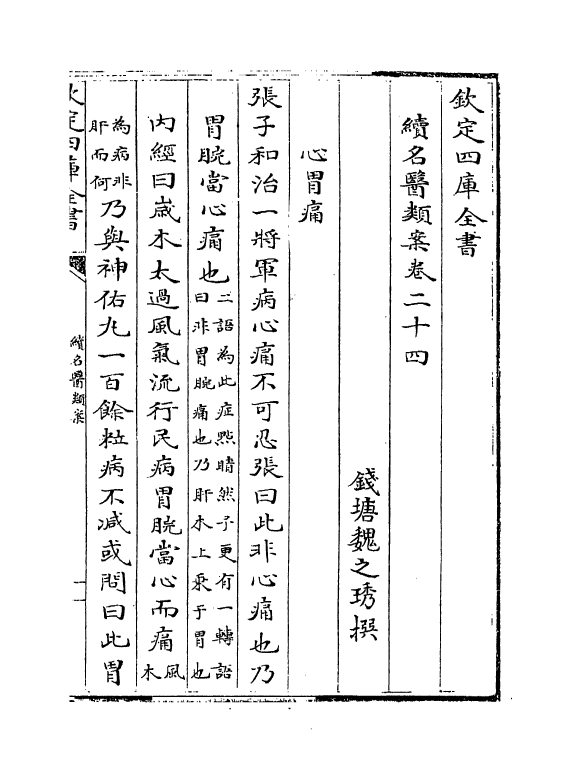 欽定四庫全書
續名醫類案卷二十四
錢塘魏之琇撰
心胃痛
張子和治一將軍病心痛不可忍張曰此非心痛也乃
胃脘當心痛也二語為此症㸃睛然予更有一轉語曰非胃脘痛也乃肝木上乘于胃也
内經曰嵗木太過風氣流行民病胃脘當心而痛風木
為病非肝而何乃與神佑丸一百餘粒病不減或問曰此胃
欽定四庫全書
續名醫類案